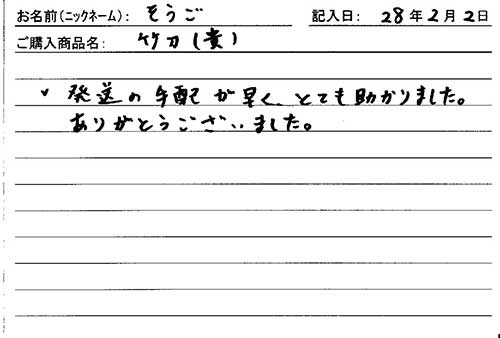 お名前(ニックネーム): そうご 記入日: 28年2月2日
ご購入商品名: 竹刀(貴)
✓ 発送の手配が早く、とても助かりました。
ありがとうございました。